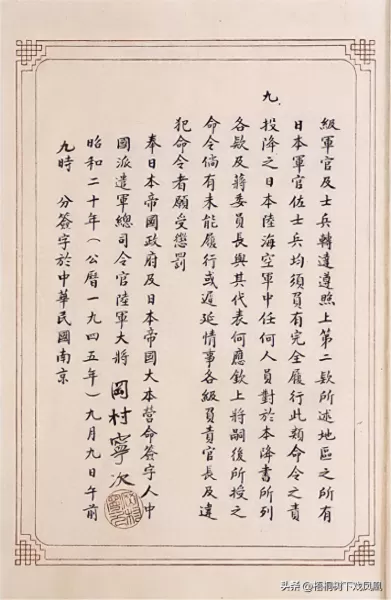 級軍官及士兵轉達遵照上第二款所述地區之所有
日本軍官佐士兵均須負有完全履行此類命令之責
九、投降之日本陸海空軍中任何人員對於本降書所列
各款及蔣委員長與其代表何應欽上將嗣後所授之
命令倘有未能履行或遲延情事各級負責官長及違
犯命令者願受懲罰
奉日本帝國政府及日本帝國大本營命簽字人中
國派遣軍總司令官陸軍大將 岡村寧次
昭和二十年(公曆一九四五年)九月九日午前
九時　分簽字於中華民國南京
头条 @梧桐树下戏凤凰